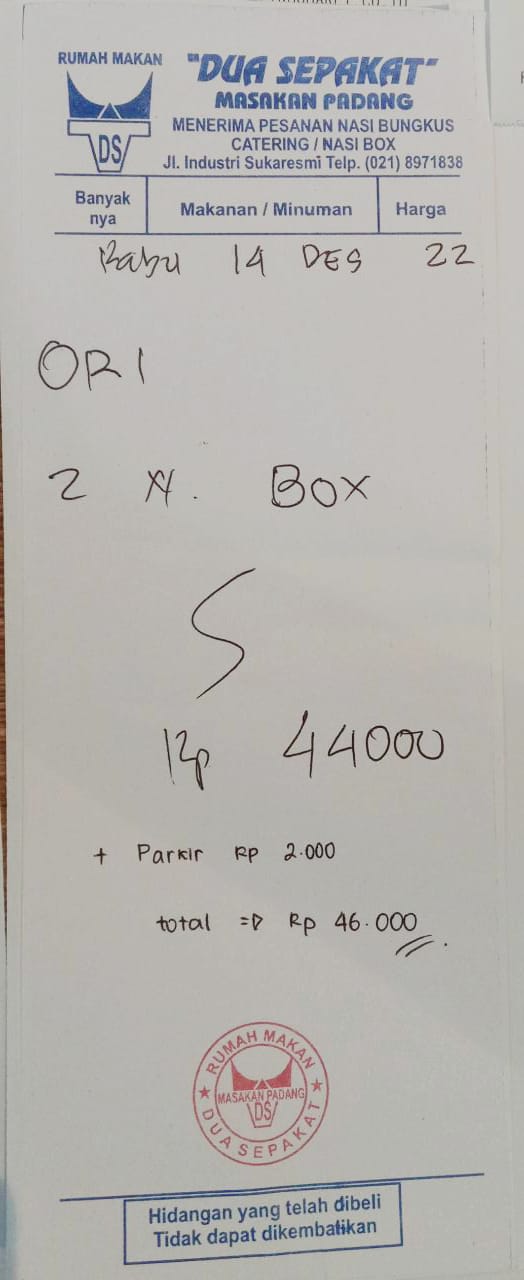 RUMAH MAKAN
"DUA SEPAKAT"
MASAKAN PADANG
DS
MENERIMA PESANAN NASI BUNGKUS
CATERING / NASI BOX
Jl. Industri Sukaresmi Telp. (021) 8971838
Banyak nya Makanan / Minuman Harga
Rabu 14 DES 22
ORI
2 N. BOX
Rp 44000
+ Parkir Rp 2.000
total => Rp 46.000
RUMAH MAKAN
MASAKAN PADANG
DS
DUA SEPAKAT
Hidangan yang telah dibeli
Tidak dapat dikembalikan